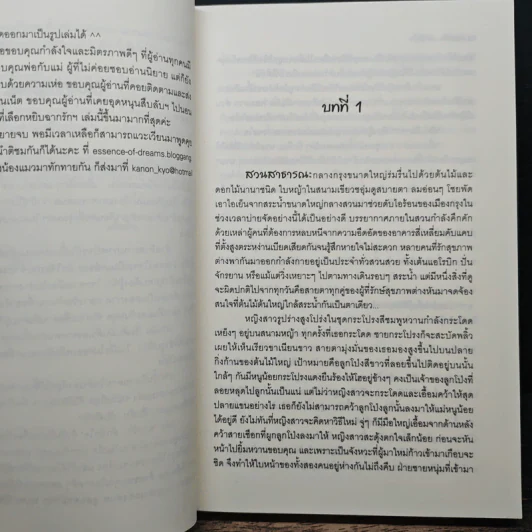 ดออกมาเป็นรูปเล่มได้ ^^
อขอบคุณกำลังใจและมิตรภาพดีๆ ที่ผู้อ่านทุกคนมี
บคุณพ่อกับแม่ ผู้ที่ไม่ค่อยชอบอ่านนิยาย แต่ก็ยัง
บด้วยความเห่อ ขอบคุณผู้อ่านที่คอยติดตามและส่ง
นเน็ต ขอบคุณผู้อ่านที่เคยอุดหนุนสืบลับฯ ไปนอน
ที่เลือกหยิบฉากรักฯ เล่มนี้ขึ้นมามากที่สุดค่ะ
ยายจบ พอมีเวลาเหลือก็สามารถแวะเวียนมาพูดคุย
น้าติชมกันก็ได้นะคะ ที่ essence-of-dreams.bloggang.
งน้องแมวมาทักทายกัน ก็ส่งมาที่ kanon_kyo@hotmail
บทที่ 1
สวนสาธารณะกลางกรุงขนาดใหญ่ร่มรื่นไปด้วยต้นไม้และ
ดอกไม้นานาชนิด ใบหญ้าในสนามเขียวชอุ่มดูสบายตา ลมอ่อนๆ โชยพัด
เอาไอเย็นจากสระน้ำขนาดใหญ่กลางสวนมาช่วยดับไอร้อนของเมืองกรุงใน
ช่วงเวลาบ่ายจัดอย่างนี้ได้เป็นอย่างดี บรรยากาศภายในสวนกำลังคึกคัก
ด้วยเหล่าผู้คนที่ต้องการหลบหนีจากความอึดอัดของอาคารสี่เหลี่ยมคับแคบ
ที่ตั้งสูงตระหง่านเบียดเสียดกันจนรู้สึกหายใจไม่สะดวก หลายคนที่รักสุขภาพ
ต่างพากันมาออกกำลังกายอยู่เป็นประจำทั่วสวนสวย ทั้งเต้นแอโรบิก ปั่น
จักรยาน หรือแม้แต่วิ่งเหยาะๆ ไปตามทางเดินรอบๆ สระน้ำ แต่มีหนึ่งสิ่งที่ดู
จะผิดปกติไปจากทุกวันคือสายตาทุกคู่ของผู้ที่รักษ์สุขภาพต่างหันมาจดจ้อง
สนใจที่ต้นไม้ต้นใหญ่ใกล้สระน้ำกันเป็นตาเดียว...
หญิงสาวรูปร่างสูงโปร่งในชุดกระโปรงสีชมพูหวานกำลังกระโดด
เหยิงๆ อยู่บนสนามหญ้า ทุกครั้งที่เธอกระโดด ชายกระโปรงก็จะสะบัดพลิ้ว
เผยให้เห็นเรียวขาเนียนขาว สายตามุ่งมั่นของเธอมองสูงขึ้นไปบนปลาย
กิ่งก้านของต้นไม้ใหญ่ เป้าหมายคือลูกโป่งสีขาวที่ลอยขึ้นไปติดอยู่บนนั้น
ใกล้ๆ กันมีหนูน้อยกระโปรงแดงยืนร้องไห้โฮอยู่ข้างๆ คงเป็นเจ้าของลูกโป่งที่
ลอยหลุดไปลูกนั้นเป็นแน่ แต่ไม่ว่าหญิงสาวจะกระโดดและเอื้อมคว้าให้สุด
ปลายแขนอย่างไร เธอก็ยังไม่สามารถคว้าลูกโป่งลูกนั้นลงมาให้แม่หนูน้อย
ได้อยู่ดี ยังไม่ทันที่หญิงสาวจะคิดหาวิธีใหม่ จู่ๆ ก็มีมือใหญ่เอื้อมจากด้านหลัง
คว้าสายเชือกที่ผูกลูกโป่งลงมาให้ หญิงสาวสะดุ้งตกใจเล็กน้อย ก่อนจะหัน
หน้าไปยิ้มหวานขอบคุณ และเพราะเป็นจังหวะที่ผู้มาใหม่ก้าวเข้ามาเกือบจะ
ชิด จึงทำให้ใบหน้าของทั้งสองคนอยู่ห่างกันไม่ถึงคืบ ฝ่ายชายหนุ่มที่เข้ามา